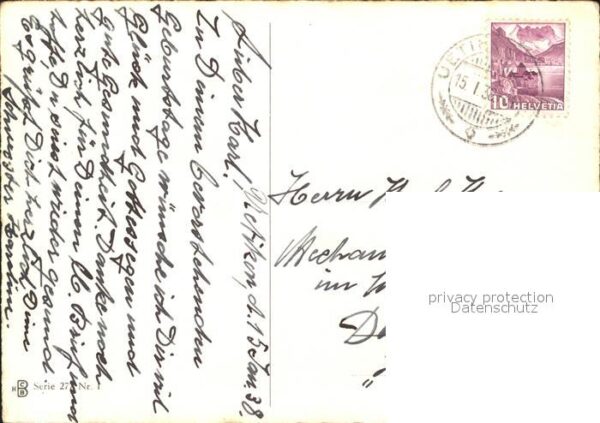 Uetikon, d. 15 Jan. 38.
Lieber Karl!
Zu Deinem bevorstehenden
Geburtstage wünsche ich Dir viel
Glück und Gottessegen und
gute Gesundheit. Danke noch
herzlich für Deinen lb. Brief und
hoffe Du seist wieder gesund.
Es grüsst Dich herzlich Deine
Schwester
Herrn Karl
Mechan
im
UETIK
15. I 3
10 HELVETIA
privacy protection
Datenschutz
Serie 27 Nr. 1